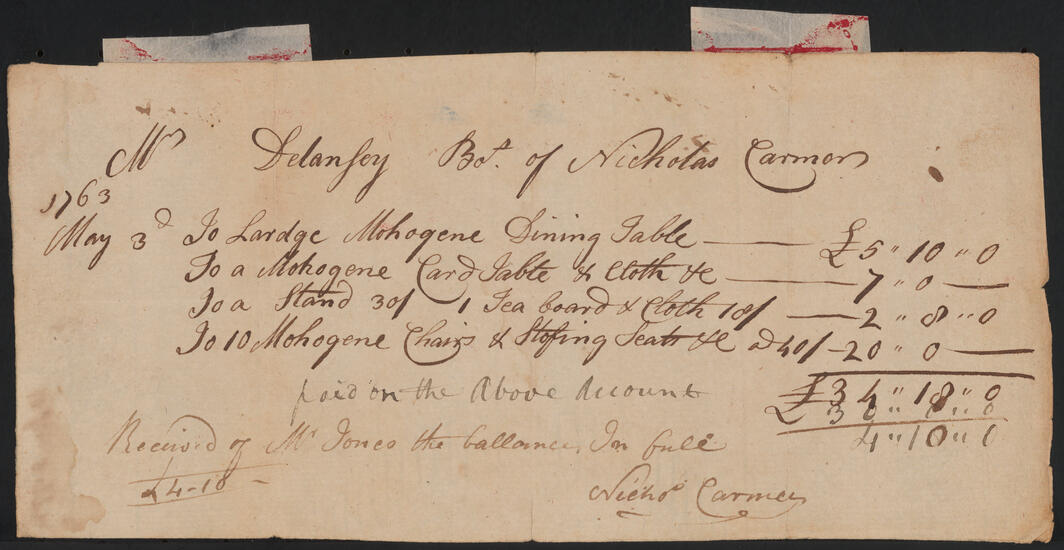 Mr Delansey Bot. of Nicholas Carmer
1763
May 3d To Lardge Mohogene Dining Table — £5 " 10 " 0
To a Mohogene Card Table & Cloth &c — 7 " 0 —
To a Stand 30/ 1 Tea board & Cloth 18/ — 2 " 8 " 0
To 10 Mohogene Chairs & Stofing Seats &c ad 40/ — 20 " 0 —
£34 " 18 " 0
paid on the Above Account £30 " 8 " 0
4 " 10 " 0
Received of Mr Jones the ballance In full
£4-10 -
Nichos Carmer